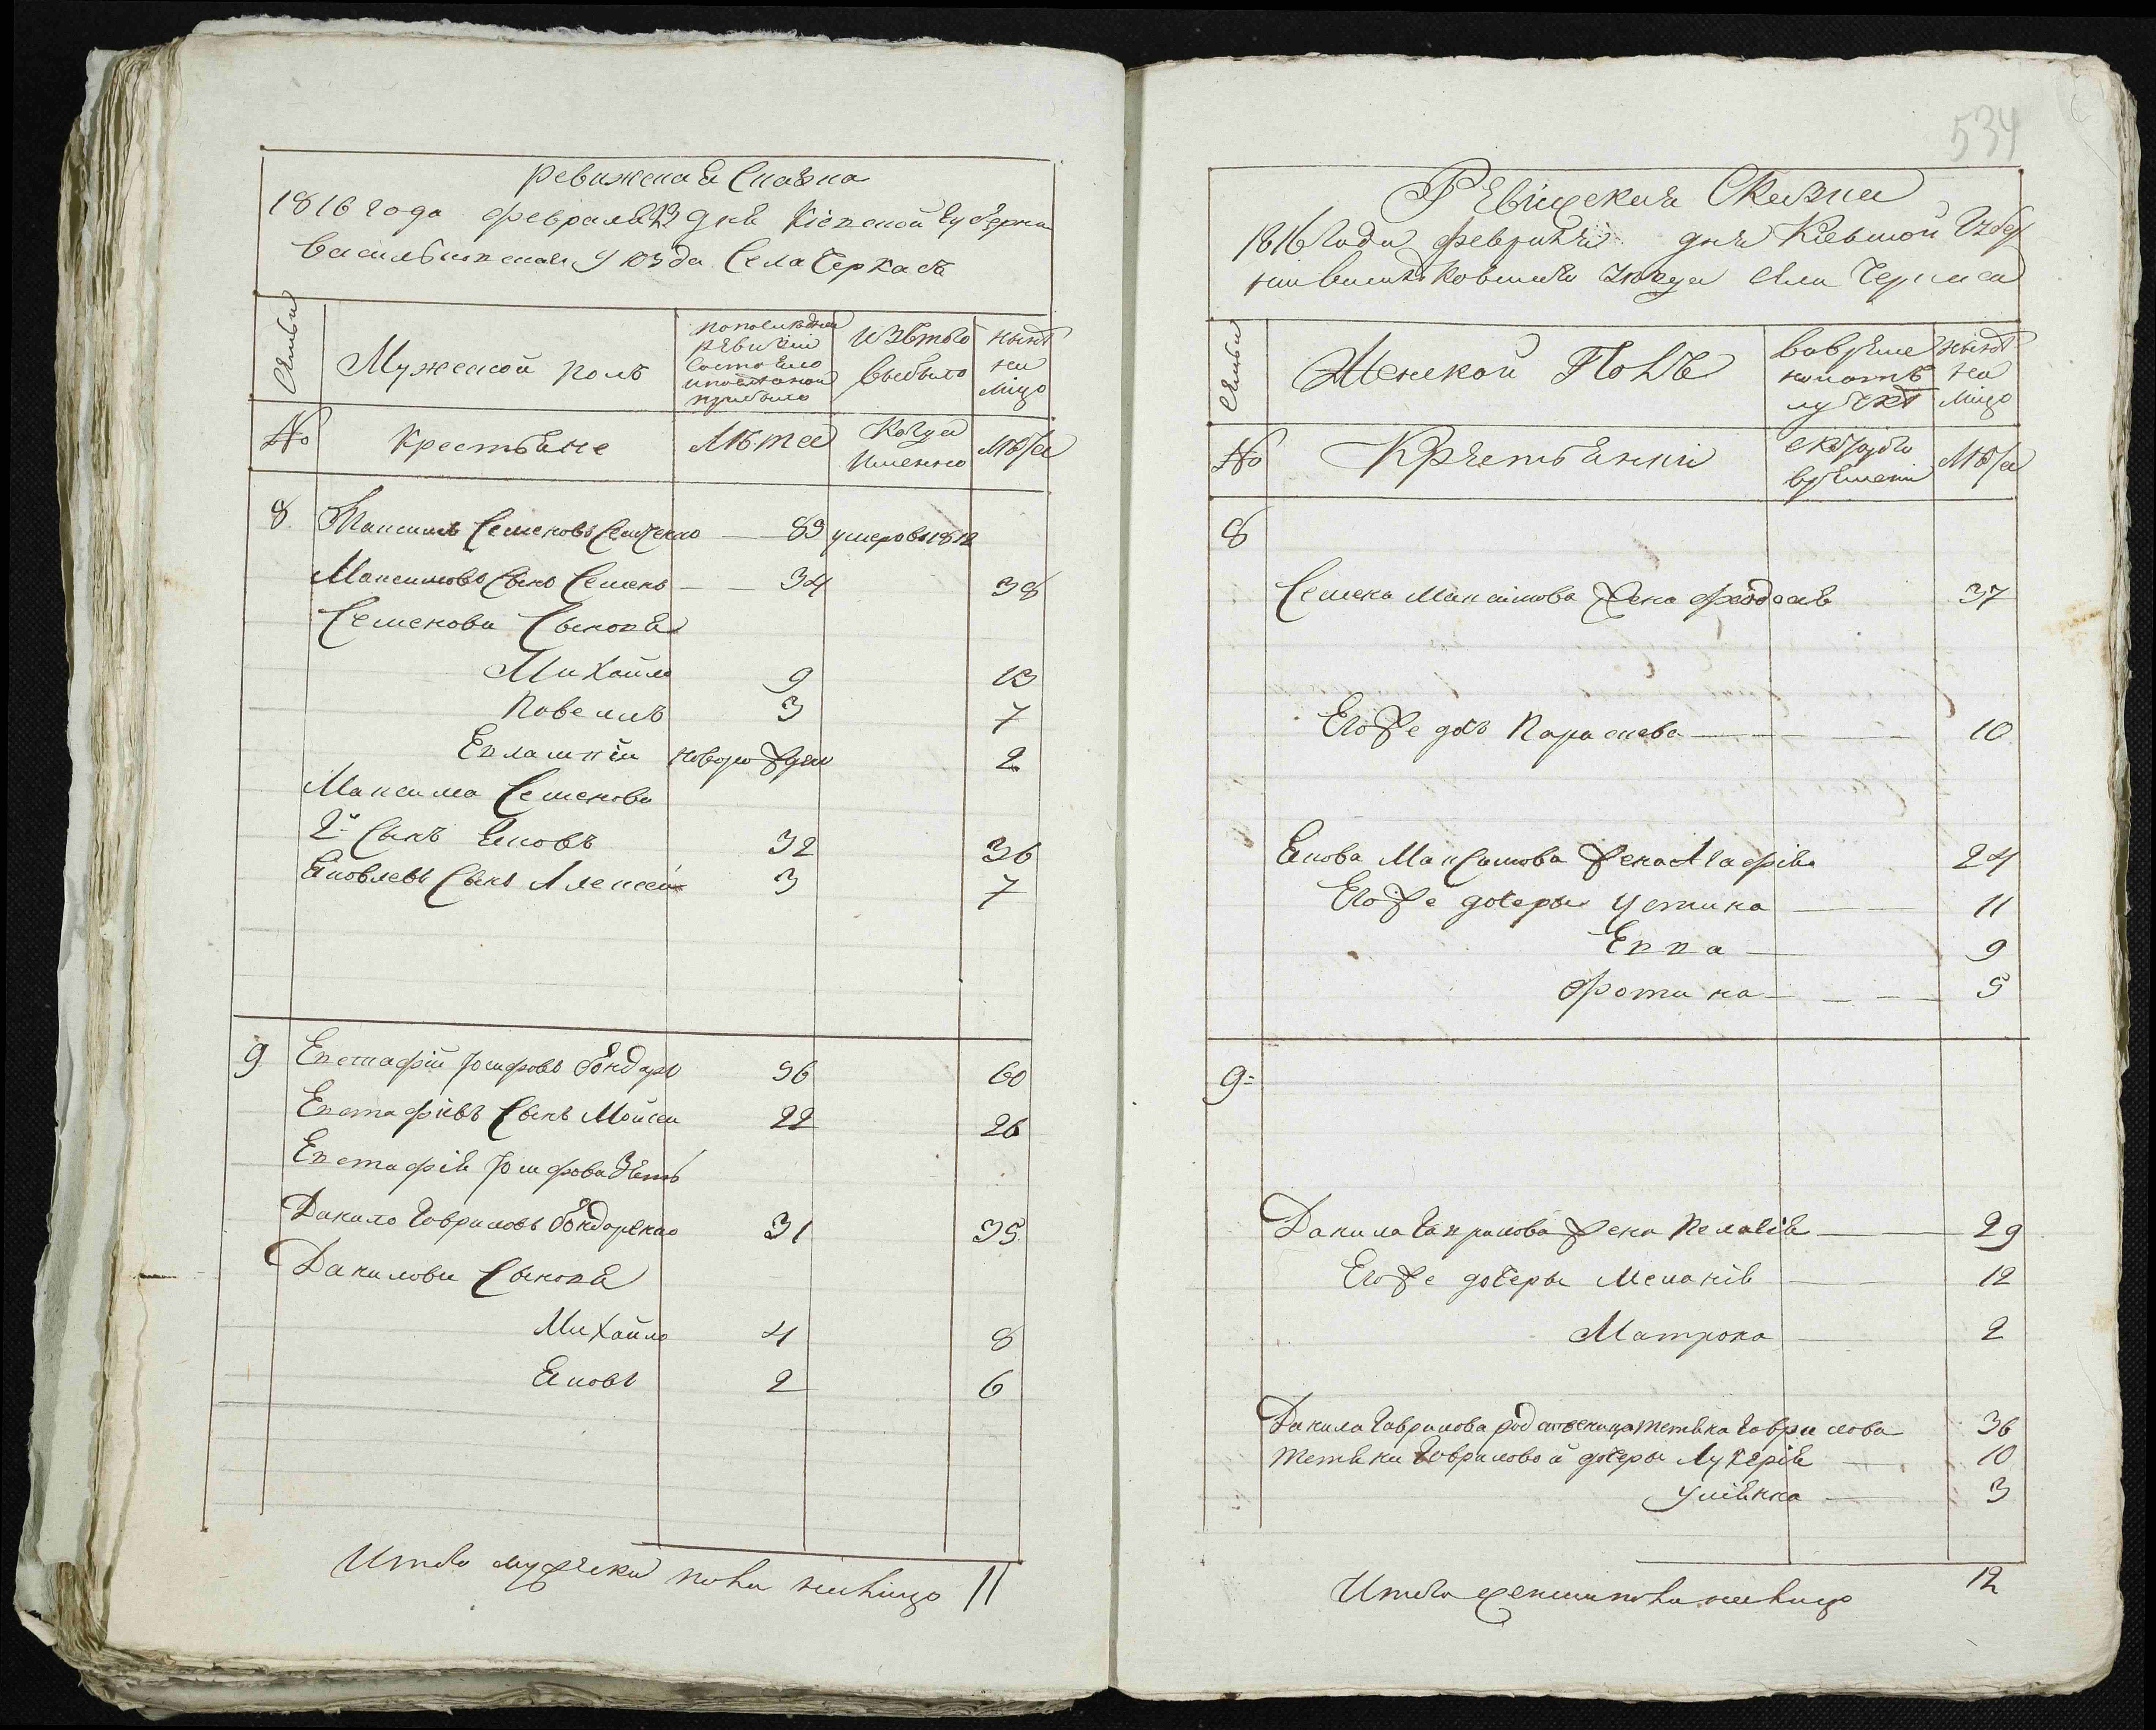 Ревижская Сказка
1816 года февраля 23 дня Кіевской Губерніи
Васильковскаго уюзда Села Черкасъ
Семьи
Мужеской полъ
по последней
ревизіи
состояло
и после оной
прибыло
Изътого
выбыло
нынѣ
на
лицо
№
Крестьяне
Лѣта
Когда
Именно
Лѣта
8 Максимъ Семеновъ Семченко 89 умеръ въ 1812
Максимовъ Сынъ Семенъ 34 38
Семенови Сыновя
Михайло 9 13
Павелъ 3 7
Евлампій новорожден 2
Максима Семенова
2й Сынъ Яковъ 32 36
Яковлевъ Сынъ Алексей 3 7
9 Евстафій Іосифовъ Бондарь 56 60
Евстафіевъ Сынъ Мойсей 22 26
Евстафія Іосифова Зять
Данило Гавриловъ Бондаренко 31 35
Данилови Сыновя
Михайло 4 8
Яковъ 2 6
Итого мужеска пола налицо 11
534
Ревизская Сказка
1816 Года февраля дня Кіевской Губер
ніи Васильковскаго уюзда Села Черкаса
Семьи
Женской Полъ
Вовремя
ной отъ
лучкѣ
нынѣ
на
лицо
№
Крестьянки
съ котораго
времени
Лѣта
8
Семена Максимова жена Феодосія 37
Его же дочь Параскева 10
Якова Максимова жена Агафія 24
Его же дочеры Устина 11
Евва 9
Фотина 5
9
Данила Гаврилова жена Пелагія 29
Его же дочеры Меланія 12
Матрона 2
Данила Гаврилова родственица Тетяна Гаврилова 36
Тетяни Гавриловой дочеры Лукерія 10
Уліянна 3
Итого женска пола налицо 12